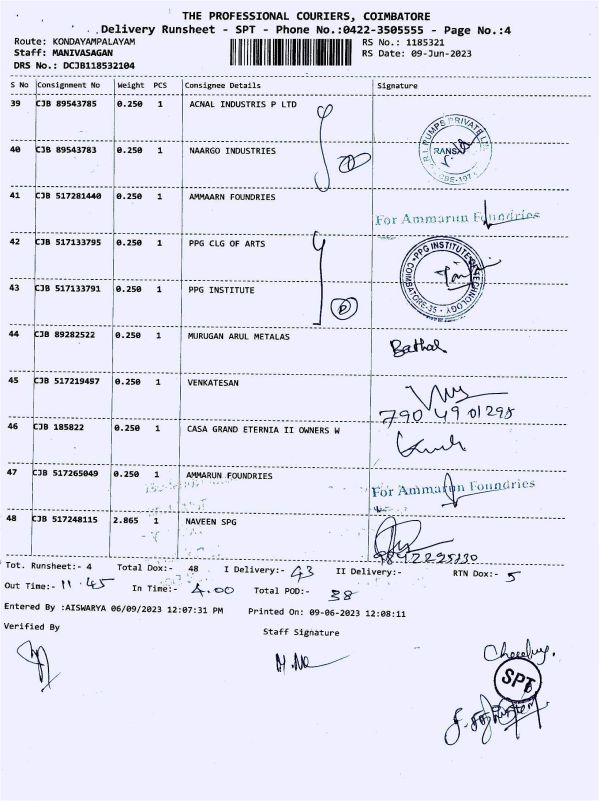 THE PROFESSIONAL COURIERS, COIMBATORE
Delivery Runsheet - SPT - Phone No.:0422-3505555 - Page No.:4
Route: KONDAYAMPALAYAM RS No.: 1185321
Staff: MANIVASAGAN RS Date: 09-Jun-2023
DRS No.: DCJB118532104
S No Consignment No Weight PCS Consignee Details Signature
39 CJB 89543785 0.250 1 ACNAL INDUSTRIS P LTD
40 CJB 89543783 0.250 1 NAARGO INDUSTRIES
41 CJB 517281440 0.250 1 AMMAARN FOUNDRIES
For Ammarun Foundries
42 CJB 517133795 0.250 1 PPG CLG OF ARTS
PPG INSTITUTE OF TECHNOLOGY COIMBATORE-35
43 CJB 517133791 0.250 1 PPG INSTITUTE
44 CJB 89282522 0.250 1 MURUGAN ARUL METALAS
45 CJB 517219497 0.250 1 VENKATESAN
790 49 01295
46 CJB 185822 0.250 1 CASA GRAND ETERNIA II OWNERS W
47 CJB 517265049 0.250 1 AMMARUN FOUNDRIES
For Ammarun Foundries
48 CJB 517248115 2.865 1 NAVEEN SPG
Tot. Runsheet:- 4 Total Dox:- 48 I Delivery:- 43 II Delivery:- RTN Dox:- 5
Out Time:- 11.45 In Time:- 4.00 Total POD:- 38
Entered By :AISWARYA 06/09/2023 12:07:31 PM Printed On: 09-06-2023 12:08:11
Verified By Staff Signature
SPT